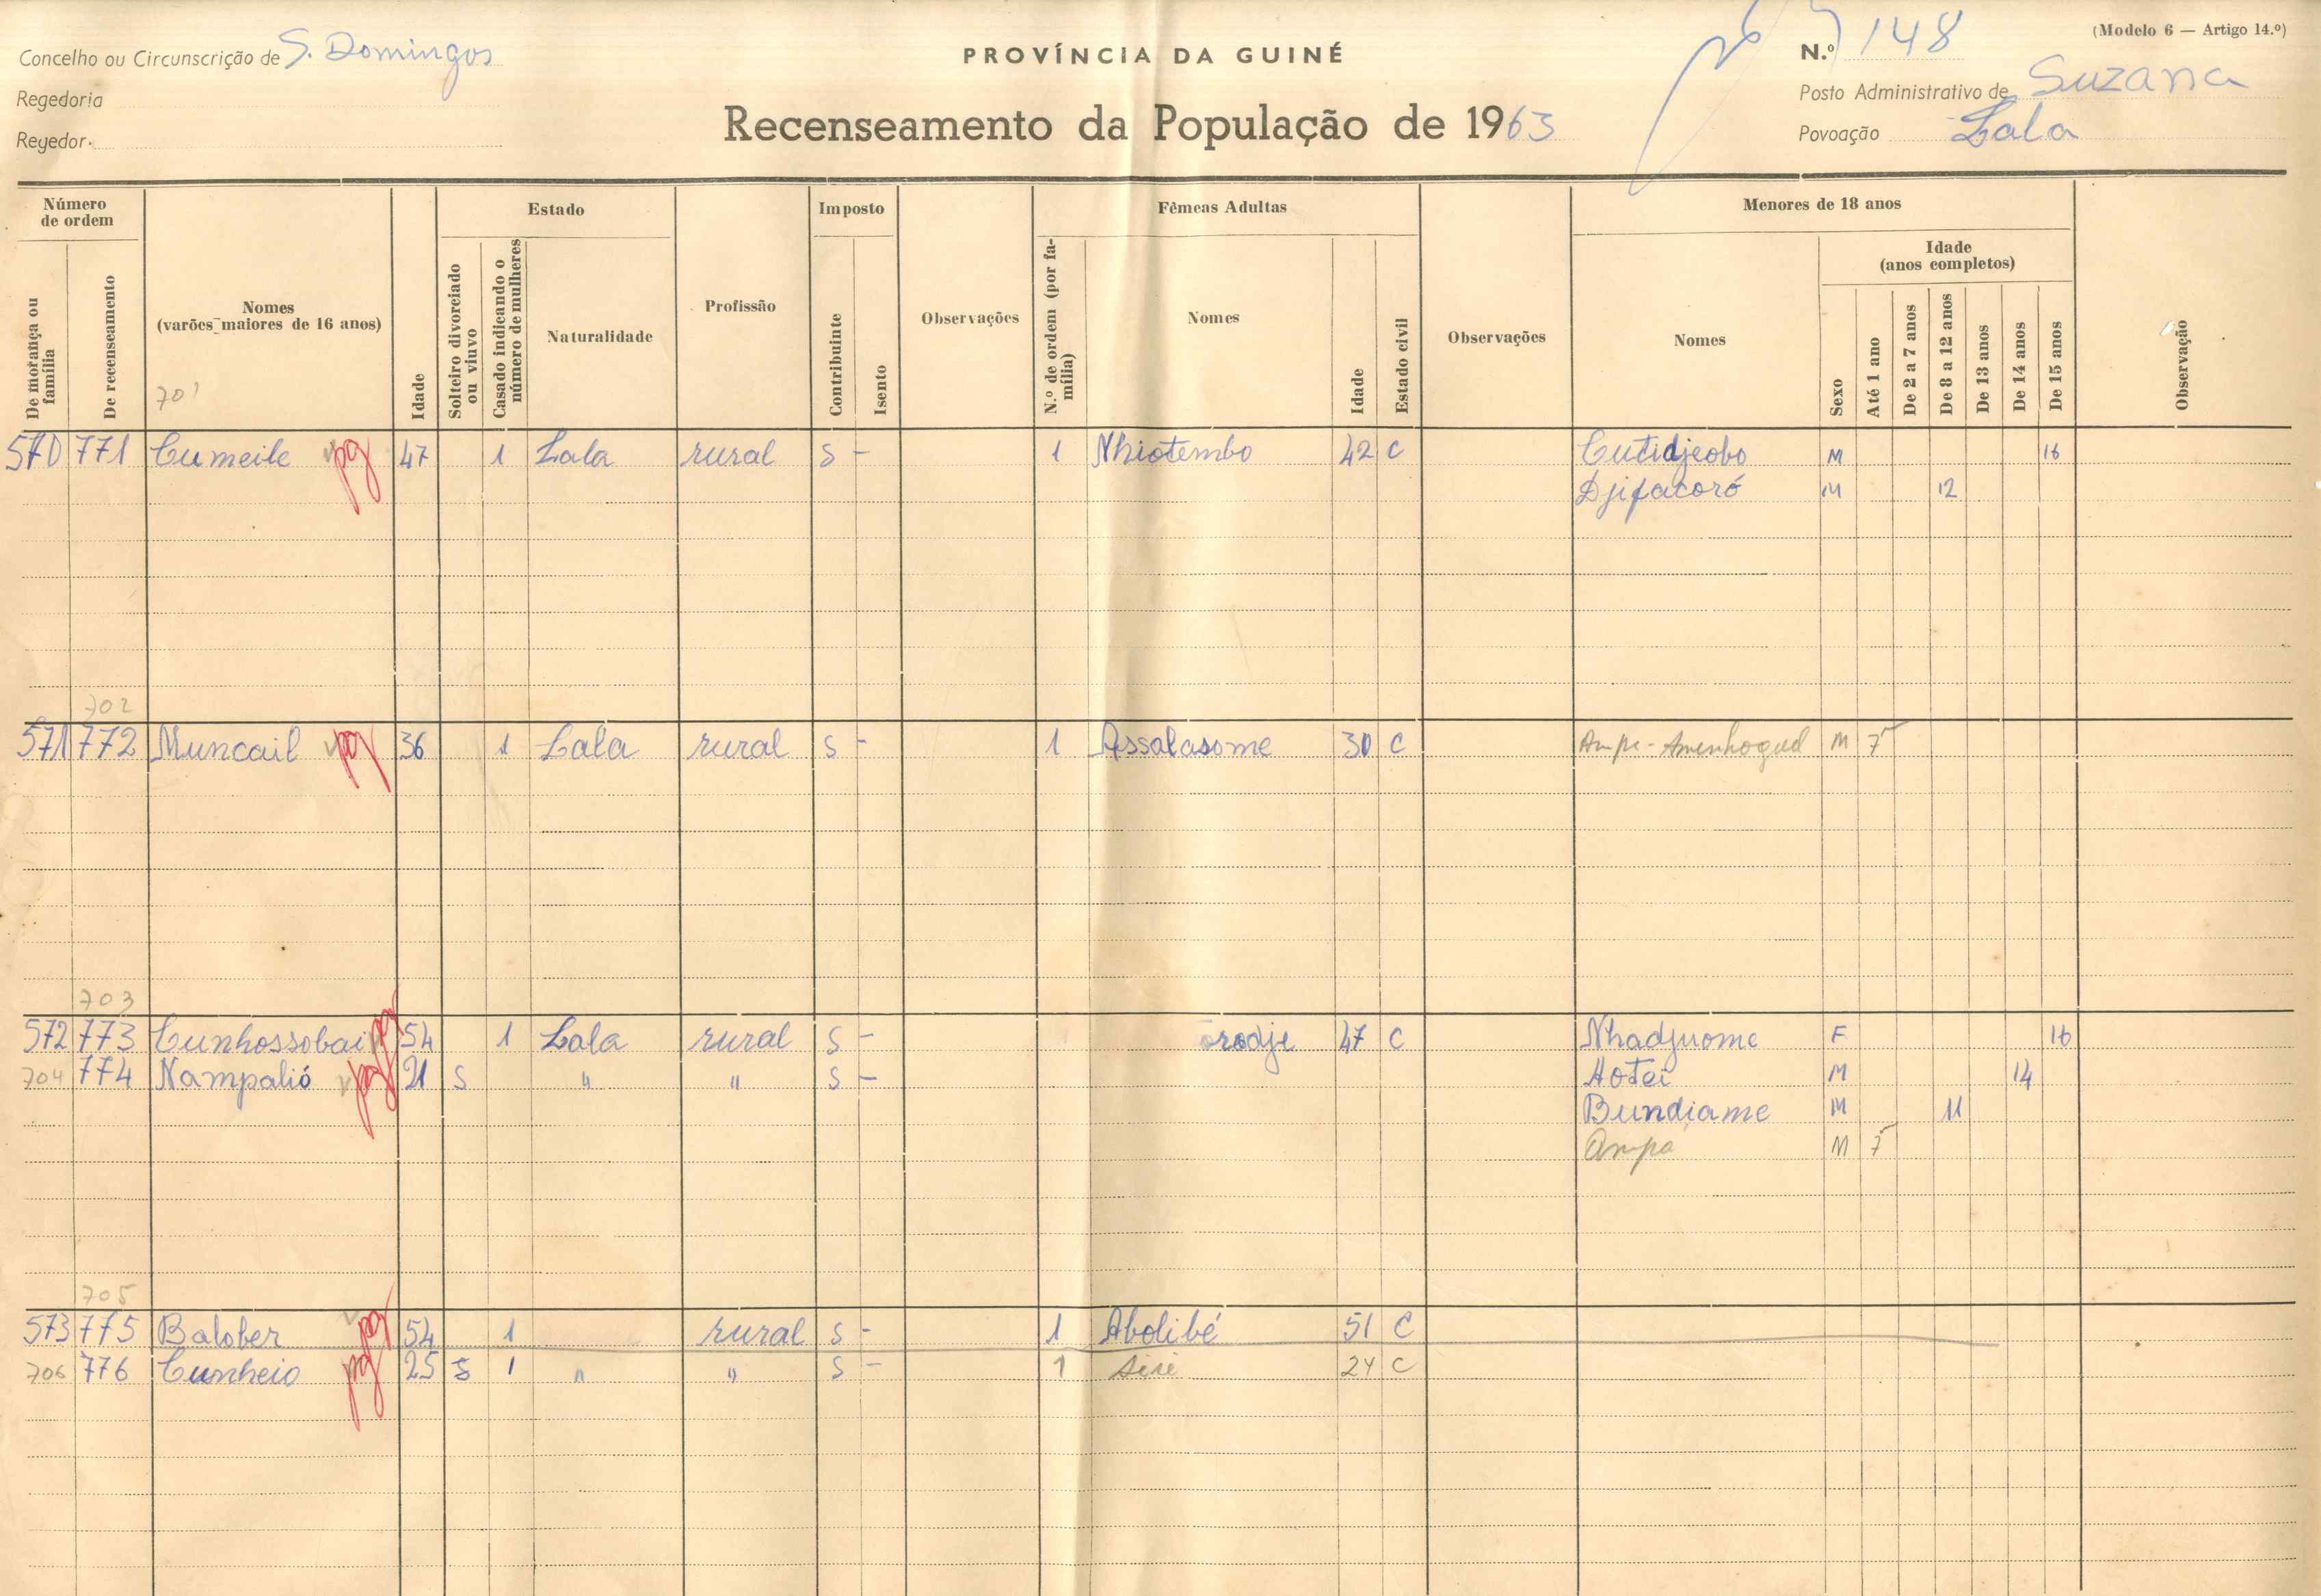 Concelho ou Circunscrição de S. Domingos
Regedoria
Regedor
PROVÍNCIA DA GUINÉ
Recenseamento da População de 1963
(Modelo 6 — Artigo 14.º)
N.º 148
Posto Administrativo de Suzana
Povoação Lala
Número de ordem
De morança ou família
De recenseamento
Nomes
(varões maiores de 16 anos)
701
Idade
Estado
Solteiro divorciado ou viuvo
Casado indicando o número de mulheres
Naturalidade
Profissão
Imposto
Contribuinte
Isento
Observações
Fêmeas Adultas
N.º de ordem (por família)
Nomes
Idade
Estado civil
Observações
Menores de 18 anos
Nomes
Sexo
Idade
(anos completos)
Até 1 ano
De 2 a 7 anos
De 8 a 12 anos
De 13 anos
De 14 anos
De 15 anos
Observação
570 771 Cumeile pg 47 1 Lala rural S - 1 Nhiotembo 42 C Cutidjeobo M 16
Djifacoró M 12
702
571 772 Muncail pg 36 1 Lala rural S - 1 Assalasome 30 C M 7
703
572 773 Cunhossobai pg 54 1 Lala rural S - rodje 47 C Nhadjuome F 16
704 774 Nampalió pg 21 S " " S - Hotei M 14
Bundiame M 11
Ampa M 7
705
573 775 Balober pg 54 1 rural S - 1 Abolibé 51 C
706 776 Cunheio pg 25 S 1 " " S - 1 24 C